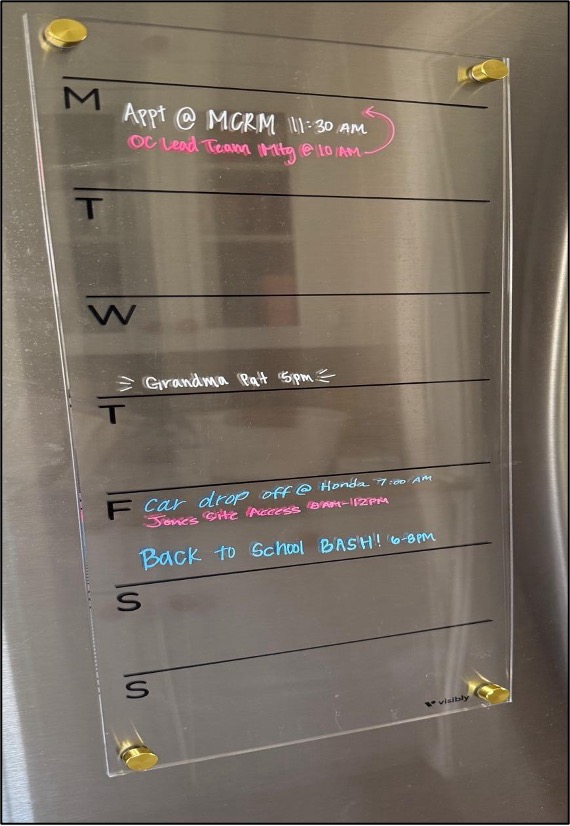 M
Appt @ MCRM 11:30 AM
OC Lead Team Mtg @ 10 AM
T
W
Grandma Pat 5pm
T
F
car drop off @ Honda 7:00 AM
Jones Site Access 8AM-12PM
Back to School BASH! 6-8PM
S
S
visibly